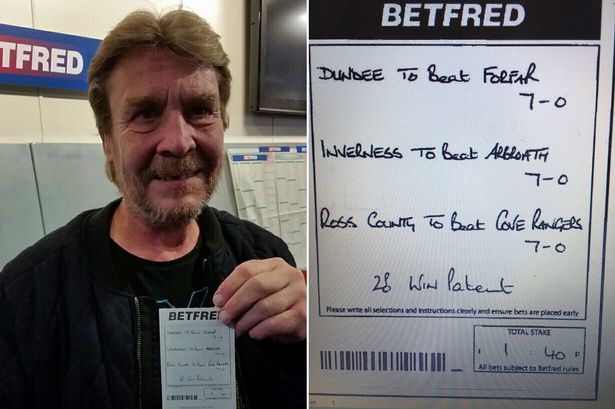 TFRED
BETFRED
BETFRED
DUNDEE To Beat FORFAR
7-0
INVERNESS To Beat ARBROATH
7-0
ROSS COUNTY To Beat COVE RANGERS
7-0
Win Patent
Please write all selections and instructions clearly and ensure bets are placed early
TOTAL STAKE
£ 1 : 40 P
All bets subject to Betfred rules